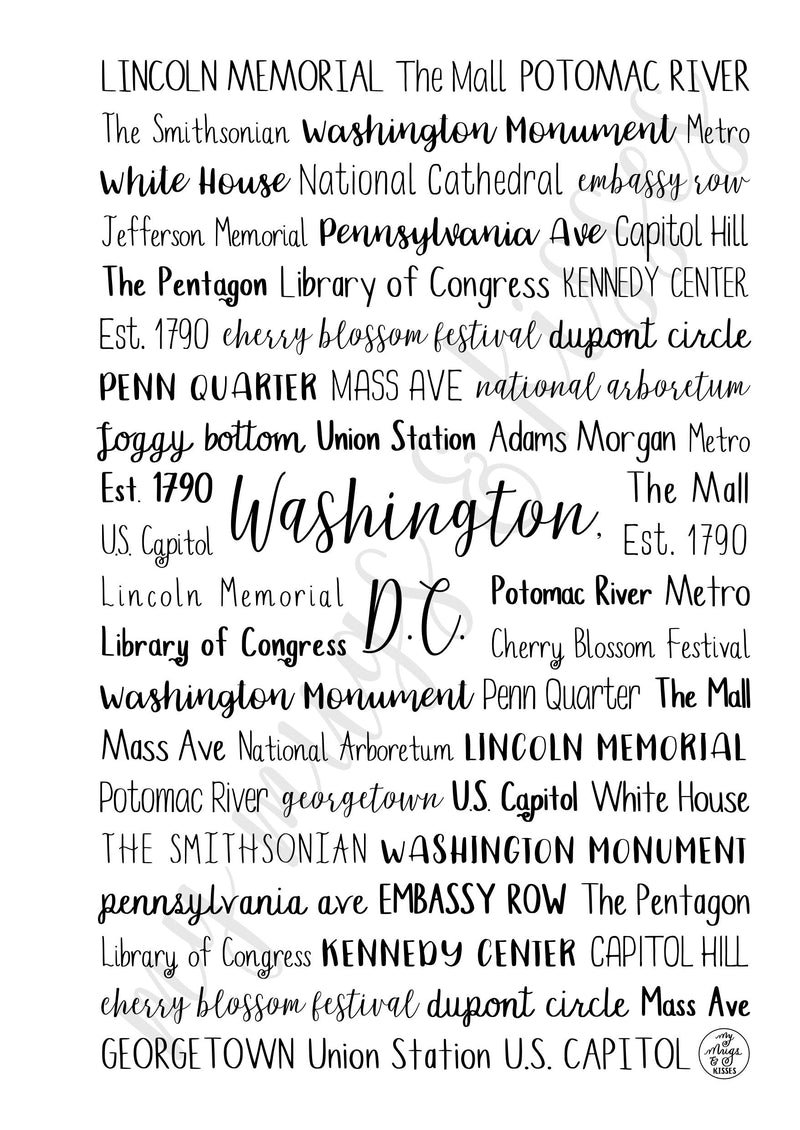 LINCOLN MEMORIAL The Mall POTOMAC RIVER
The Smithsonian Washington Monument Metro
White House National Cathedral embassy row
Jefferson Memorial Pennsylvania Ave Capitol Hill
The Pentagon Library of Congress KENNEDY CENTER
Est. 1790 cherry blossom festival dupont circle
PENN QUARTER MASS AVE national arboretum
foggy bottom Union Station Adams Morgan Metro
Est. 1790 The Mall
Washington,
U.S. Capitol Est. 1790
Lincoln Memorial Potomac River Metro
D.C.
Library of Congress Cherry Blossom Festival
Washington Monument Penn Quarter The Mall
Mass Ave National Arboretum LINCOLN MEMORIAL
Potomac River georgetown U.S. Capitol White House
THE SMITHSONIAN WASHINGTON MONUMENT
pennsylvania ave EMBASSY ROW The Pentagon
Library of Congress KENNEDY CENTER CAPITOL HILL
cherry blossom festival dupont circle Mass Ave
GEORGETOWN Union Station U.S. CAPITOL
my
mugs
&
KISSES
my mugs & kisses